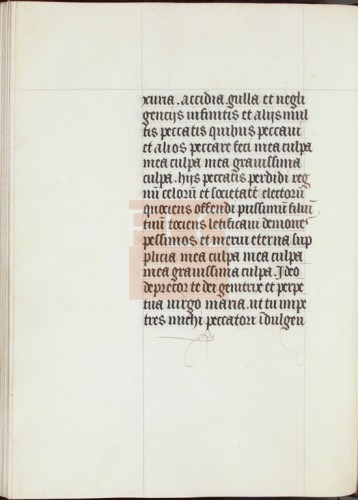 xuria . accidia . gulla et negli
gencijs infinitis et alijs mul
tis peccatis quibus peccaui
et alios peccare feci mea culpa
mea culpa mea grauissima
culpa . hijs peccatis perdidi reg
nū celorū et societatē electorū
quociens offendi pijssimū filiū
tuū tociens letificaui demones
pessimos et merui eterna sup
plicia mea culpa mea culpa
mea grauissima culpa . Ideo
deprecor te dei genitrix et perpe
tua uirgo maria . ut tu impe
tres michi peccatori idulgen